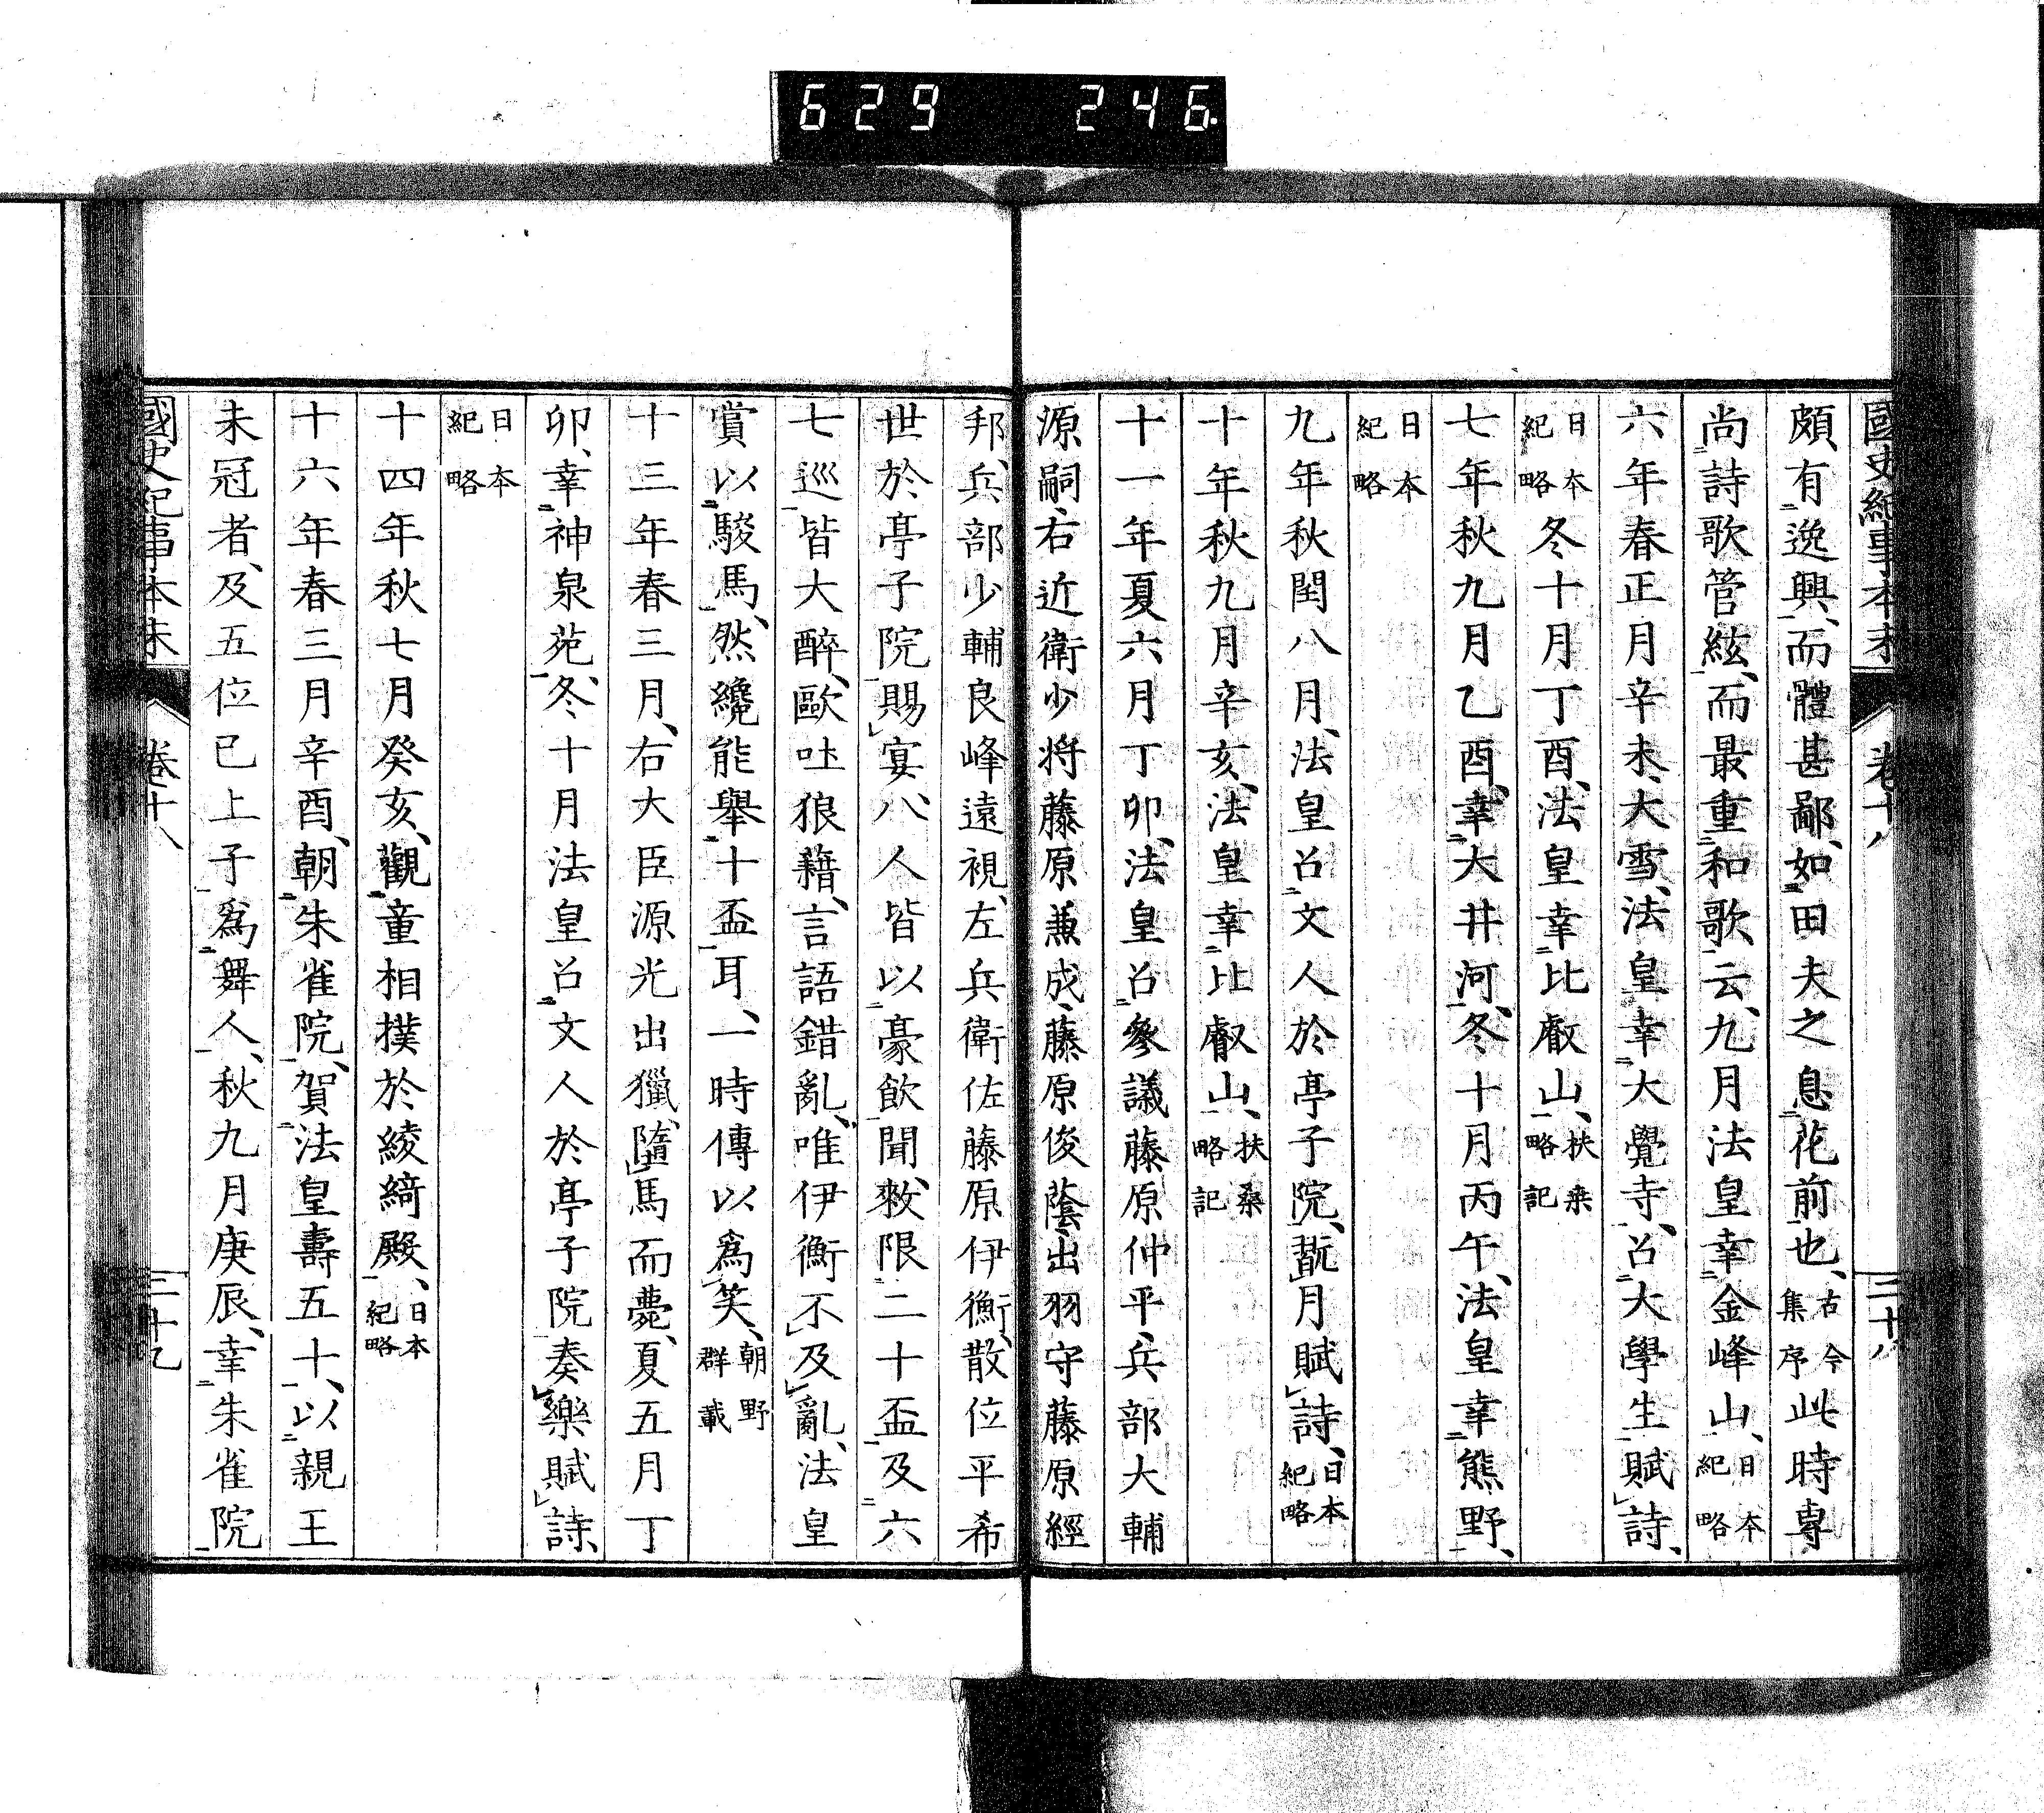 629 246
國史紀事本末 卷十八 三十八
頗有逸興、而體甚鄙、如田夫之息花前也、古今集序此時專
尚詩歌管絃、而最重和歌云、九月法皇幸金峰山、日本紀略
六年春正月辛未、大雪、法皇幸大覺寺、召大學生賦詩、
日本紀略冬十月丁酉、法皇幸比叡山、扶桑略記
七年秋九月乙酉、幸大井河、冬十月丙午、法皇幸熊野、
日本紀略
九年秋閏八月、法皇召文人於亭子院、翫月賦詩、日本紀略
十年秋九月辛亥、法皇幸比叡山、扶桑略記
十一年夏六月丁卯、法皇召參議藤原仲平、兵部大輔
源嗣、右近衛少將藤原兼成、藤原俊蔭、出羽守藤原經
邦、兵部少輔良峰遠視、左兵衛佐藤原伊衡、散位平希
世於亭子院賜宴、八人皆以豪飲聞、敕限二十盃、及六
七巡、皆大醉、歐吐狼藉、言語錯亂、唯伊衡不及亂、法皇
賞以駿馬、然纔能舉十盃耳、一時傳以爲笑、朝野群載
十三年春三月、右大臣源光出獵、墮馬而薨、夏五月丁
卯、幸神泉苑、冬十月法皇召文人於亭子院奏樂賦詩、
日本紀略
十四年秋七月癸亥、觀童相撲於綾綺殿、日本紀略
十六年春三月辛酉、朝朱雀院、賀法皇壽五十、以親王
未冠者、及五位已上子爲舞人、秋九月庚辰、幸朱雀院
國史紀事本末 卷十八 三十九